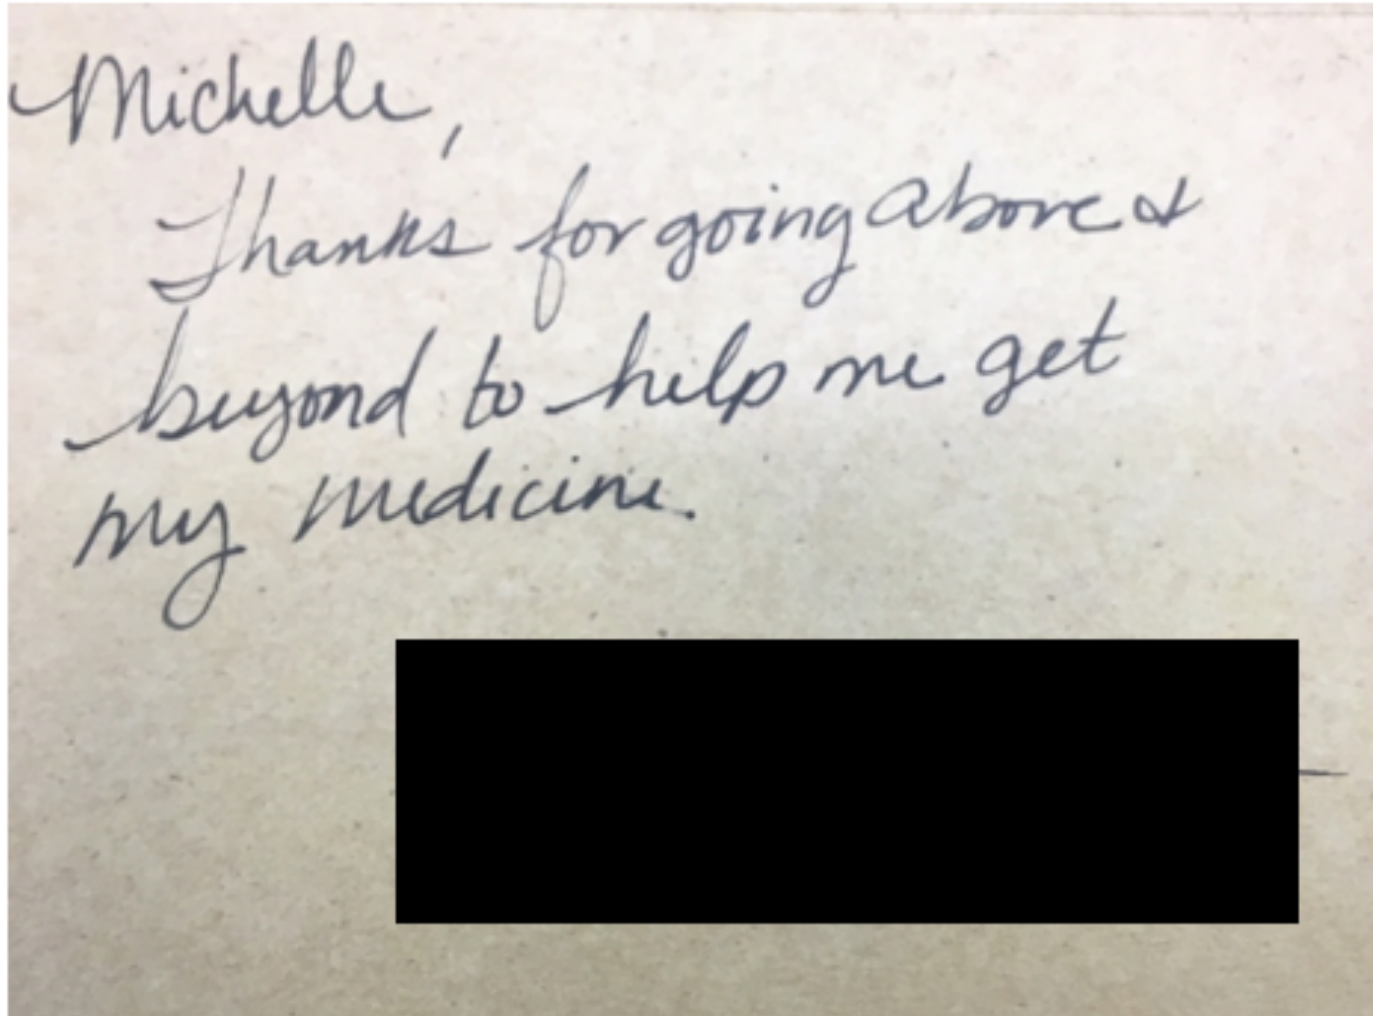 Michelle,
Thanks for going above &
beyond to help me get
my medicine.